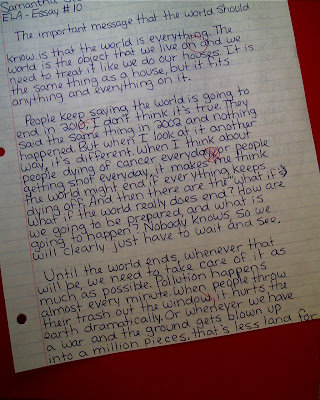 Samantha
ELA - Essay #10
The important message that the world should
know is that the world is everything. The
world is the object that we live on and we
need to treat it like we do our houses. It is
the same thing as a house, but it fits
anything and everything on it.
People keep saying the world is going to
end in 2010, I don't think it's true. They
said the same thing in 2002 and nothing
happened. But when I look at it another
way, it's different. When I think about
people dying of cancer everyday or people
getting shot everyday, it makes me think
the world might end, if everything keeps
dying off. And then there are the "what if's"
What if the world really does end? How are
we going to be prepared, and what is
going to happen? Nobody knows, so we
will clearly just have to wait and see.
Until the world ends, whenever that
will be, we need to take care of it as
much as possible. Pollution happens
almost every minute. When people throw
their trash out the window, it hurts the
earth dramatically. Or whenever we have
a war and the ground gets blown up
into a million pieces, that's less land for